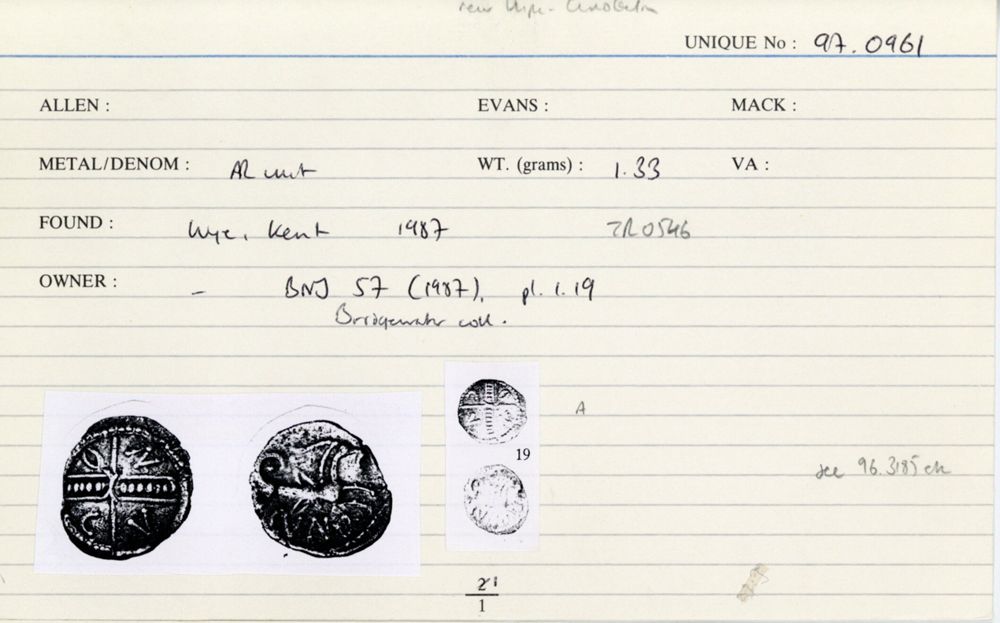 new type -
UNIQUE No : 97.0961
ALLEN : EVANS : MACK :
METAL/DENOM : AR unit WT. (grams) : 1.33 VA :
FOUND : Wye, Kent 1987 TR0546
OWNER : - BNJ 57 (1987), pl. 1.19
Bridgewater coll.
A
19
see 96.3185
2 1
1